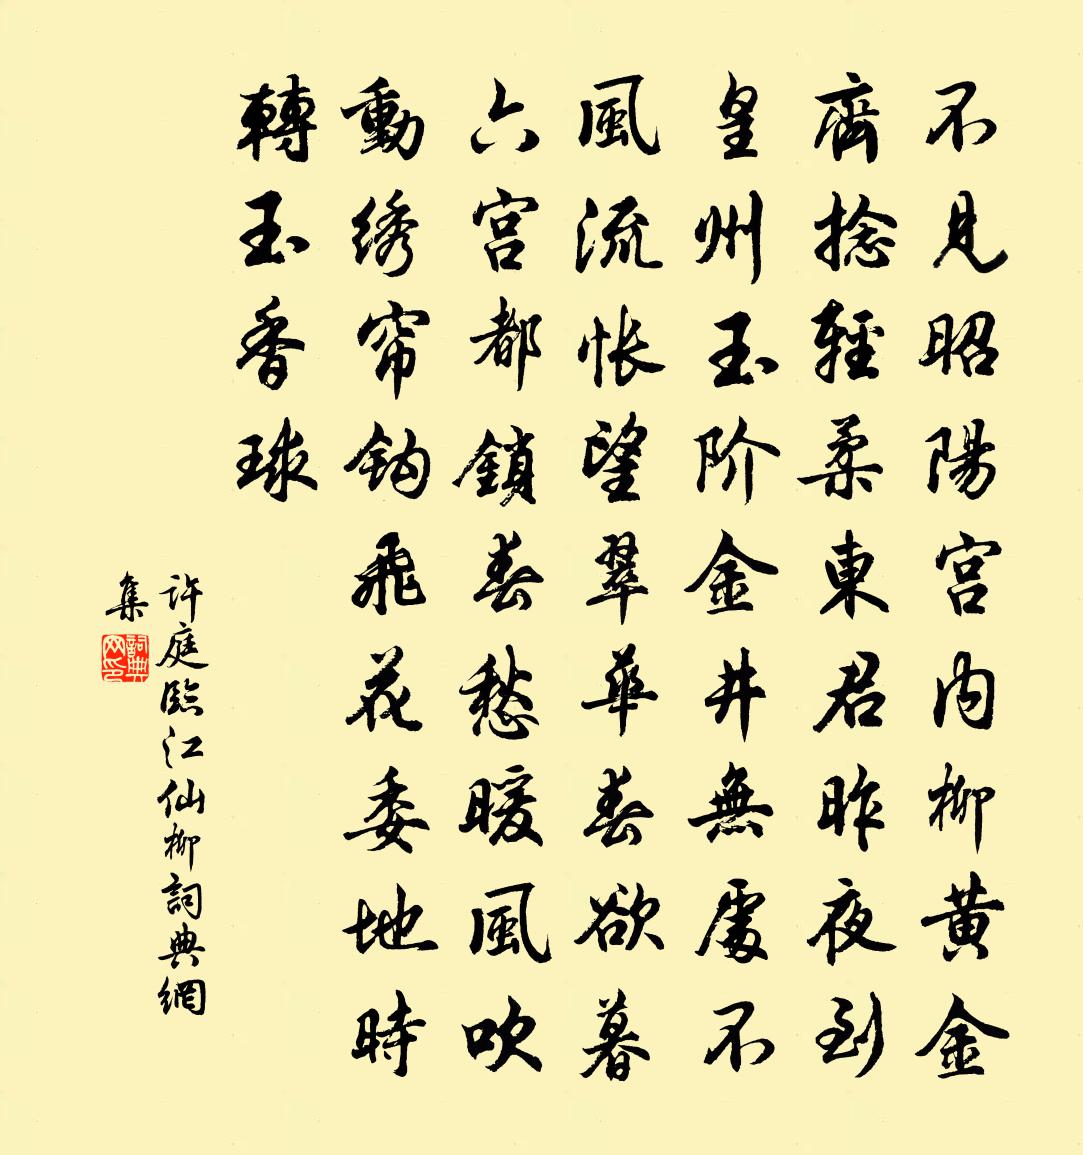 不見昭陽宮内柳黄金
齊捻輕柔東君昨夜到
皇州玉阶金井無處不
風流怅望翠華春欲暮
六宮都鎖春愁暖風吹
動绣帘钩飛花委地時
轉玉香球
許庭臨江仙柳詞典網
集
詞典网印